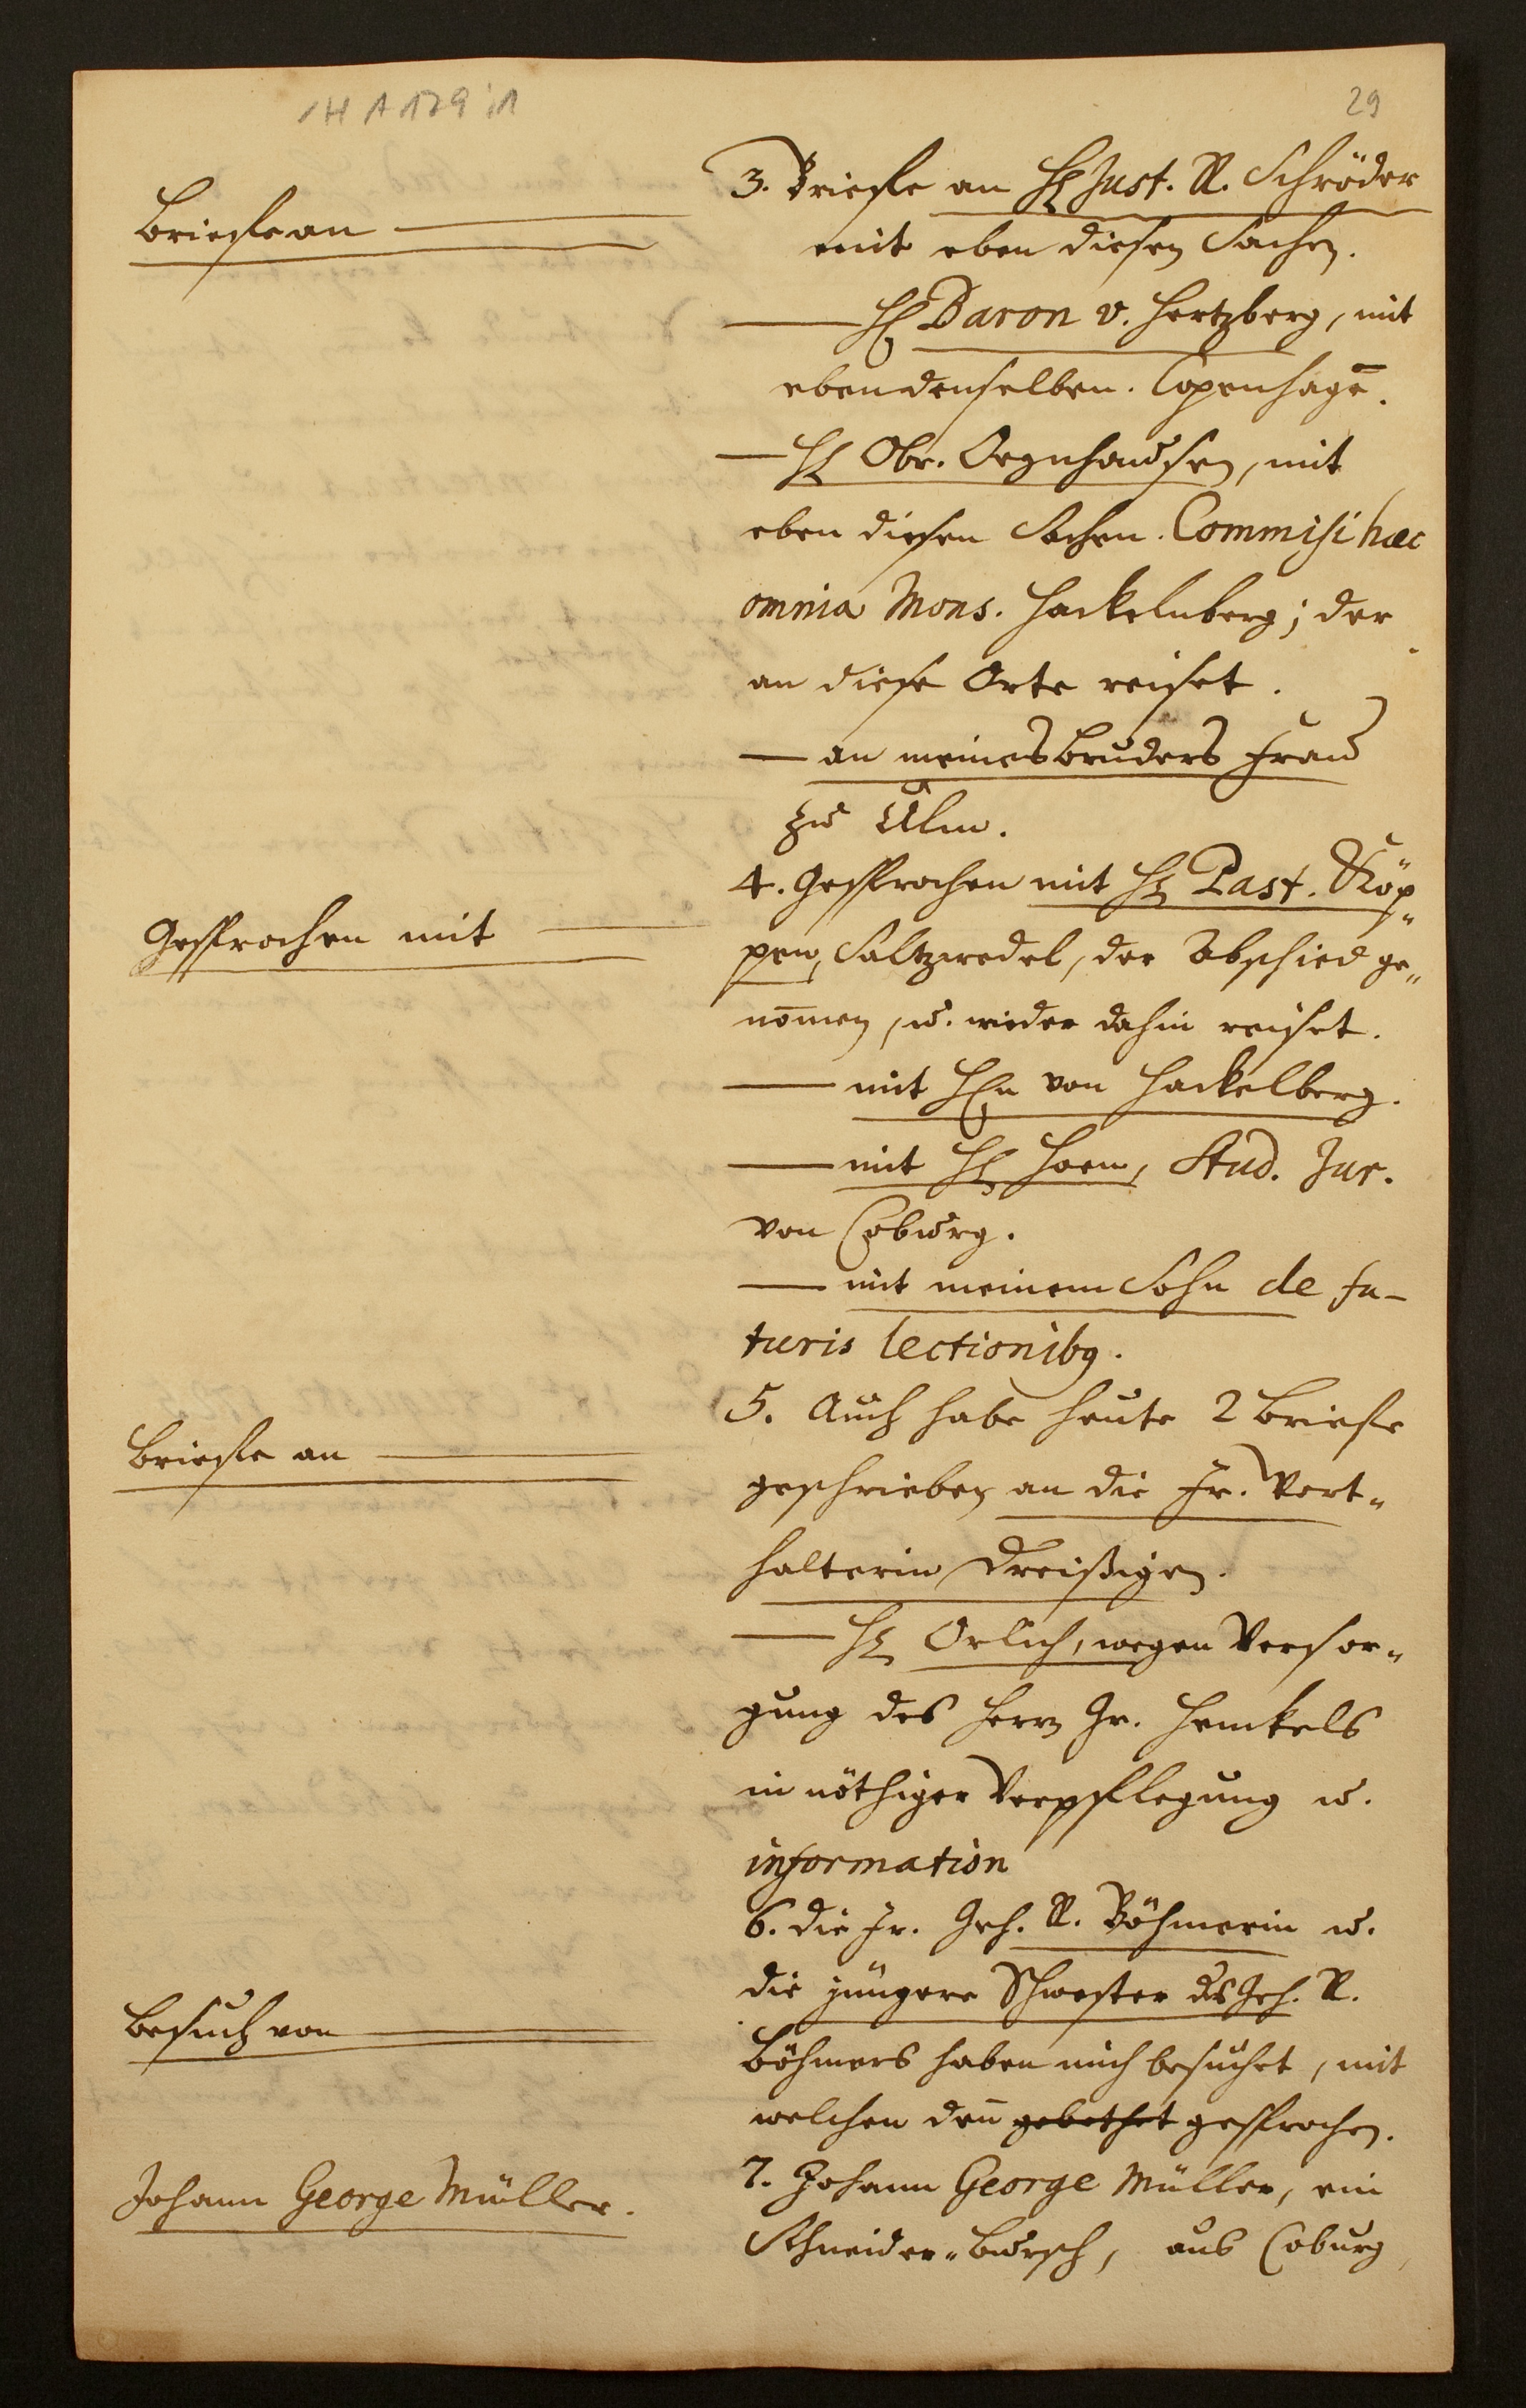 1H A 179 : 1
29
Brieffe an
3. Brieffe an H. Just. R. Schröder
mit eben diesen Sachen.
— H. Baron v. Hertzberg, mit
ebendenselben. Copenhagē.
— H. Obr. Oeynhausen, mit
eben diesen Sachen. Commisi hæc
omnia Mons. Hackelnberg; der
an diese Orte reiset.
— an meines Bruders Frau
zu Ulm.
Gesprochen mit
4. Gesprochen mit H. Past. Köp„
pen, Saltzwedel, der Abschied ge„
nom̄en, u. wieder dahin reiset.
— mit Hn von Hackelberg.
— mit H. Horn, Stud. Jur.
von Coburg.
— mit meinem Sohn de fu-
turis lectionibq.
Brieffe an
5. Auch habe heute 2 Brieffe
geschrieben an die Fr. Vor„
halterin Dreißigen.
— H. Orlich, wegen Versor„
gung des Herrn Gr. Henckels
in nöthiger Verpflegung u.
information
6. die Fr. Geh. R. Böhmerin u.
die jüngere Schwester des Geh. R.
Besuch von
Böhmers haben mich besuchet, mit
welchen den̄ gebethet gesprochen.
Johann George Müller.
7. Johann George Müller, ein
Schneider„Bursch, aus Coburg